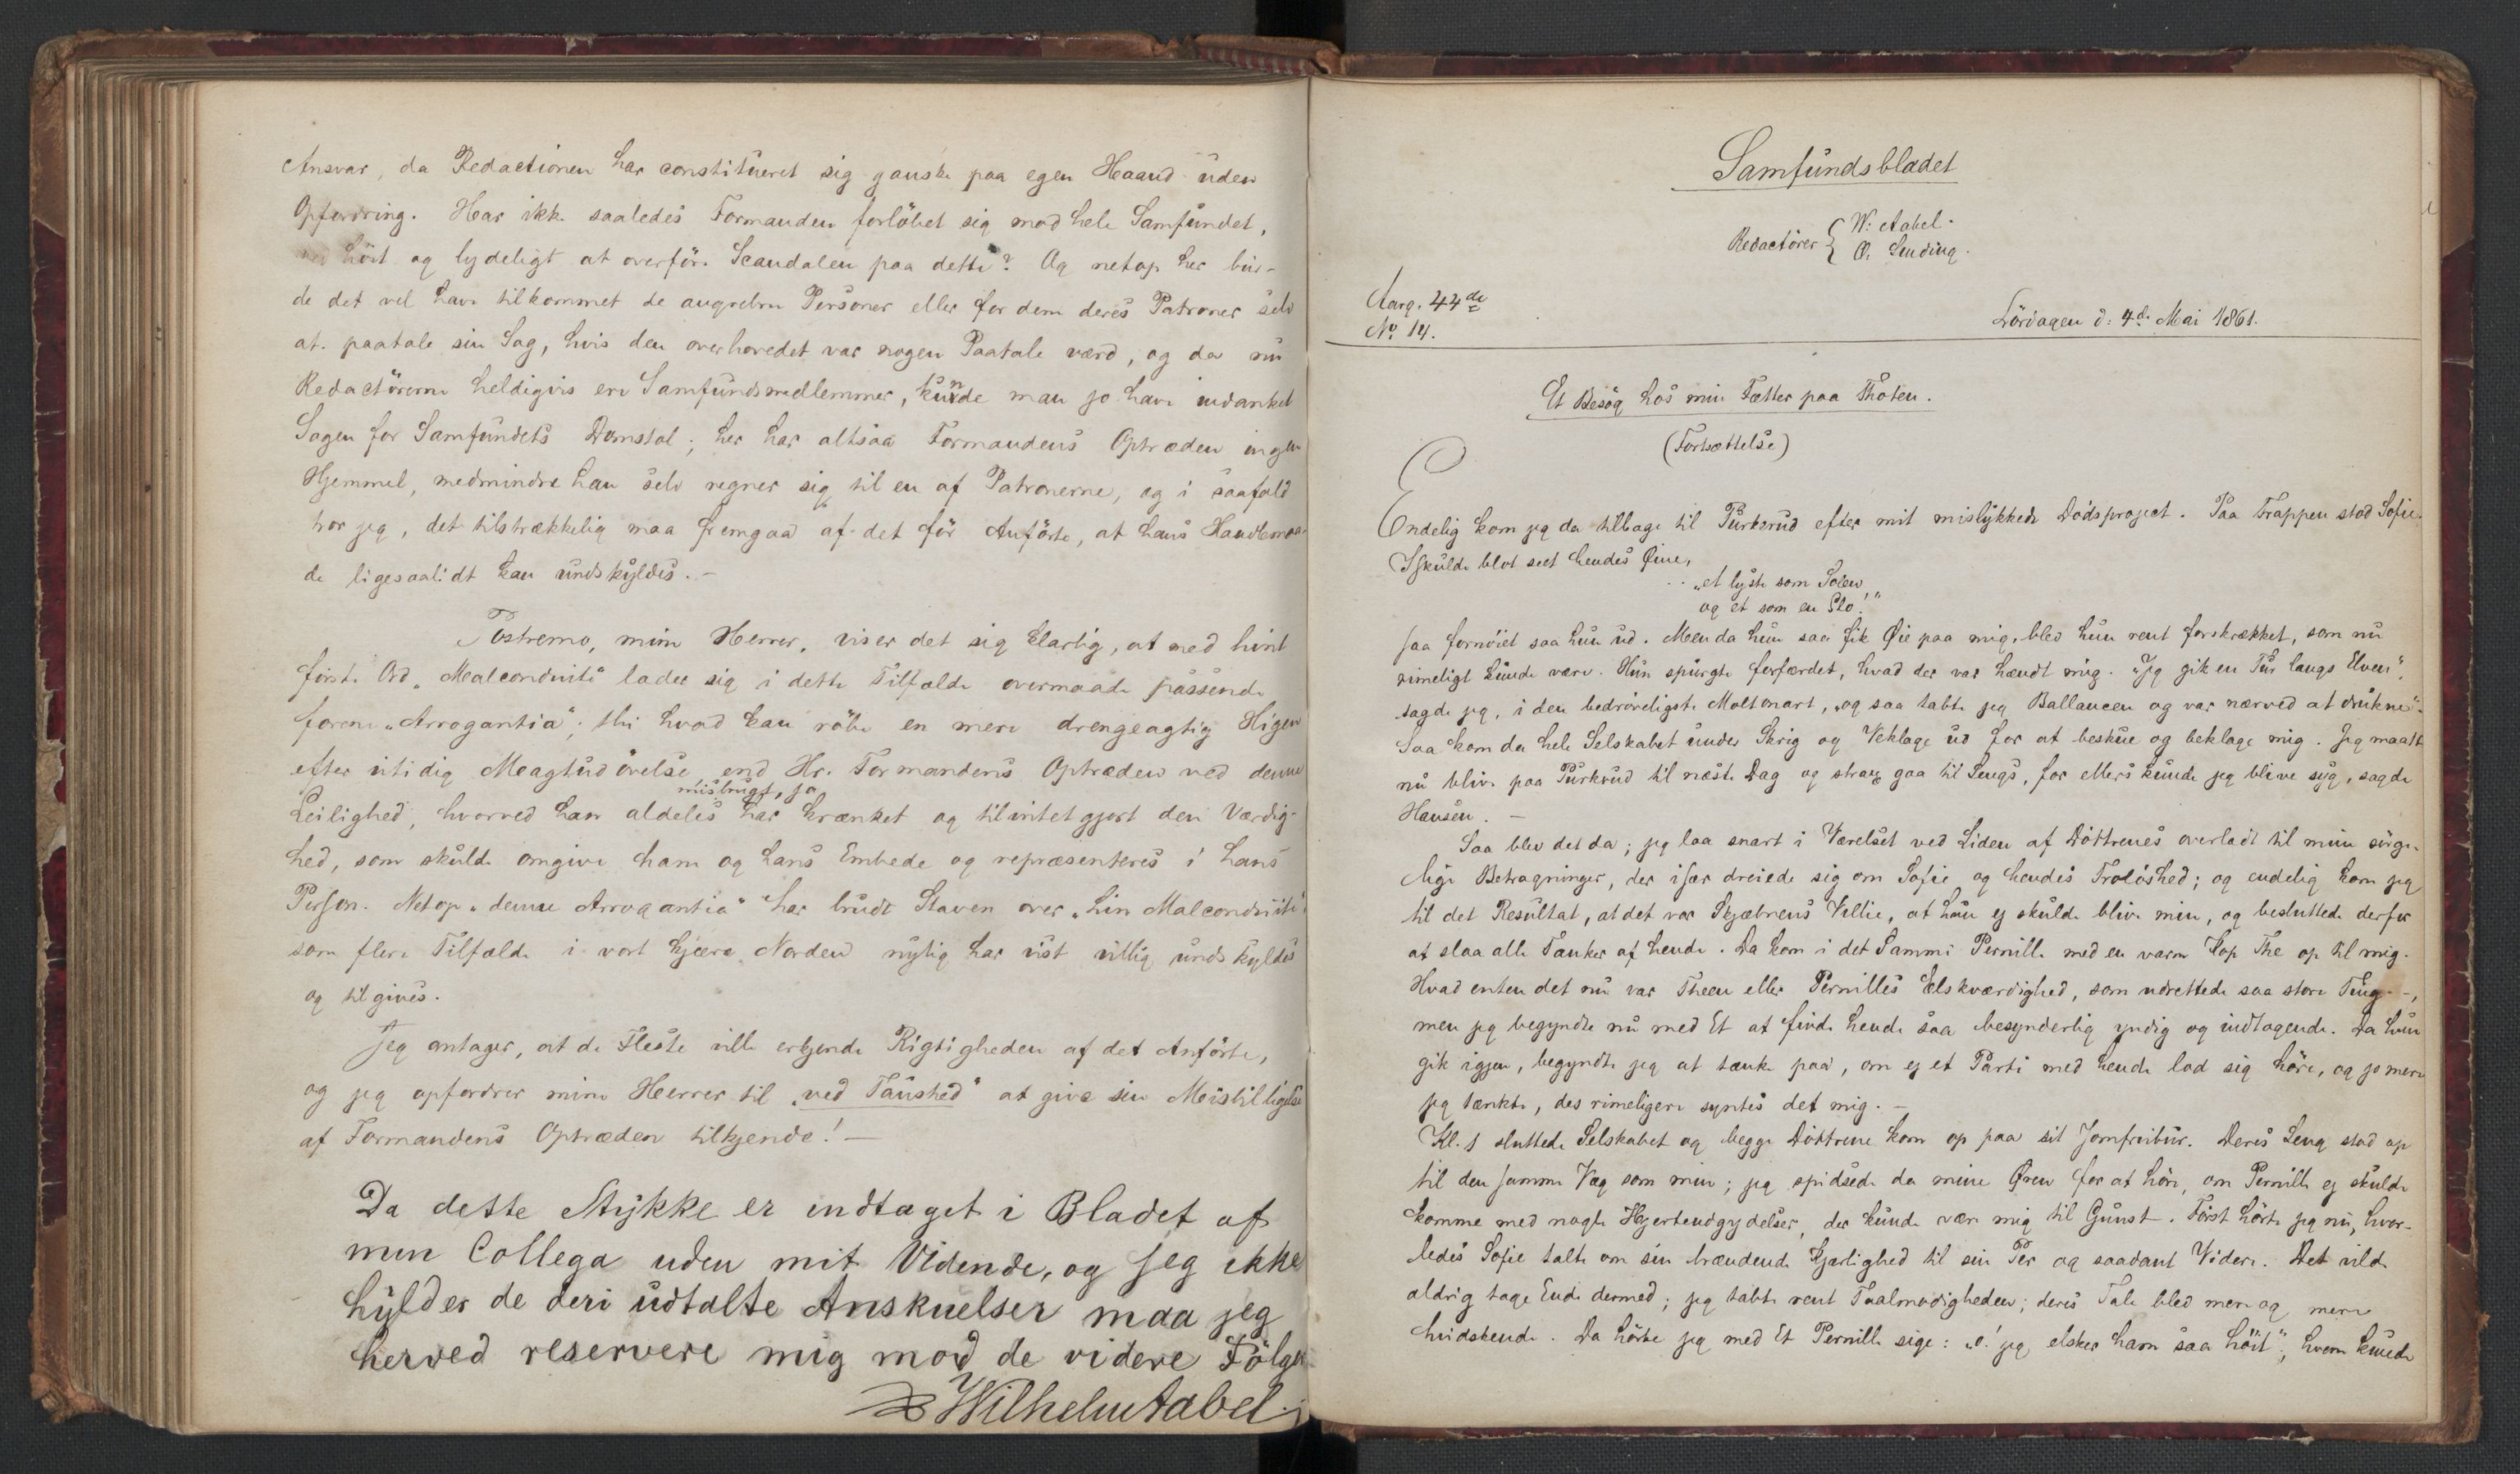 Ansvar, da Redactionen har constitueret sig ganske paa egen Haand uden
Opfordring. Har ikke saaledes Formanden forløbet sig mod hele Samfundet,
ved høit og lydeligt at overføre Scandalen paa dette? Og netop her bur-
de det vel have tilkommet de angrebne Personer eller for dem deres Patroner selv
at paatale sin Sag, hvis den overhovedet var nogen Paatale værd, og da nu
Redactørerne heldigvis ere Samfundsmedlemmer, kunde man jo have indanket
Sagen for Samfundets Domstol; her har altsaa Formandens Optræden ingen
Hjemmel, medmindre han selv regner sig til en af Patronerne, og i saafald
tror jeg, det tilstrækkelig maa fremgaa af det før Anførte, at hans Handlemaa-
de ligesaalidt kan undskyldes. –
Postremo, mine Herrer, viser det sig klarlig, at med hint
første Ord „Malconduite lader sig i dette Tilfælde overmaade passende
forene „Arrogantia"; thi hvad kan røbe en mere drengeagtig Higen
efter utidig Magtudøvelse, end Hr. Formandens Optræden ved denne
misbrugt, ja
Leilighed, hvorved han aldeles har krænket og tilintetgjort den Værdig-
hed, som skulde omgive ham og hans Embede og repræsenteres i hans
Person. Netop „denne Arrogantia" har brudt Staven over „hin Malconduite",
som flere Tilfælde i vort kjære Norden nylig har vist villig undskyldes
og tilgives.
Jeg antager, at de Fleste ville erkjende Rigtigheden af det Anførte,
og jeg opfordrer mine Herrer til „ved Taushed" at give sin Misbilligelse
af Formandens Optræden tilkjende! –
Da dette Stykke er indtaget i Bladet af
min Collega uden mit Vidende, og jeg ikke
hylder de deri udtalte Anskuelser maa jeg
herved reservere mig mod de videre Følger
Wilhelm Aabel
Samfundsbladet
Redactører { W. Aabel.
O. Sending.
Aarg. 44de
No 14.
Lørdagen d. 4d. Mai 1861.
Et Besøg hos min Fætter paa Thoten.
(Fortsættelse)
Endelig kom jeg da tilbage til Purkerud efter mit mislykkede Dødsproject. Paa Trappen stod Sofie.
I skulde blot seet hendes Øine,
„et lyste som Solen
og et som en Glo!"
saa fornøiet saa hun ud. Men da hun saa fik Øie paa mig, blev hun rent forskrækket, som nu
rimeligt kunde være. Hun spurgte forfærdet, hvad der var hændt mig. „Jeg gik en Tur langs Elven",
sagde jeg, i den bedrøveligste Moltonart, „og saa tabte jeg Ballancen og var nærved at drukne".
Saa kom da hele Selskabet under Skrig og Veklage ud for at beskue og beklage mig. Jeg maatte
nu blive paa Purkrud til næste Dag og strax gaa til Sengs, for ellers kunde jeg blive syg, sagde
Hansen. –
Saa blev det da; jeg laa snart i Værelset ved Siden af Døttrenes overladt til mine sørge-
lige Betragninger, der især dreiede sig om Sofie og hendes Troløshed; og endelig kom jeg
til det Resultat, at det var Skjæbnens Villie, at hun ej skulde blive min, og besluttede derfor
at slaa alle Tanker af hende. Da kom i det Samme Pernille med en varm Kop The op til mig.
Hvad enten det nu var Theen eller Pernilles Elskværdighed, som udrettede saa store Ting –,
men jeg begyndte nu med Et at finde hende saa besynderlig yndig og indtagende. Da hun
gik igjen, begyndte jeg at tænke paa, om ej et Parti med hende lod sig høre, og jo mere
jeg tænkte, des rimeligere syntes det mig. –
Kl. 1 sluttede Selskabet og begge Døttrene kom op paa sit Jomfrubur. Deres Seng stod op
til den samme Væg som min; jeg spidsede da mine Øren for at høre, om Pernille ej skulde
komme med nogle Hjerteudgydelser, der kunde være mig til Gunst. Først hørte jeg nu, hvor-
ledes Sofie talte om sin brændende Kjærlighed til sin Per og saadant Videre. Det vilde
aldrig tage Ende dermed; jeg tabte rent Taalmodigheden; deres Tale blev mere og mere
hvidskende. Da hørte jeg med Et Pernille sige: „o! jeg elsker ham saa høit"; hvem kunde